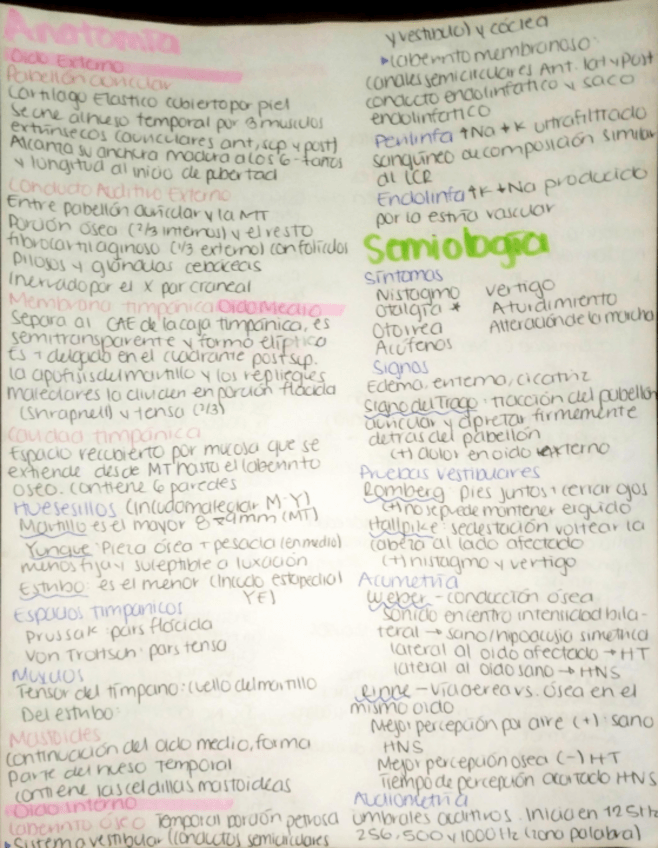 Anatomía
Oido Externo
Pabellón auricular
Cartílago Elastico cubierto por piel
Se une al hueso temporal por 3 musculos
extrínsecos (auriculares ant, sup y post)
Alcanza su anchura madura a los 6-7 años
y longitud al inicio de pubertad
Conducto Auditivo Externo
Entre pabellón auricular y la MT
Porción ósea (2/3 internos) y el resto
fibrocartilaginoso (1/3 externo) con folículos
pilosos y glándulas cebaceas
Inervado por el X par craneal
Membrana timpánica Oido Medio
Separa al CAE de la caja timpánica, es
semitransparente y forma elíptica
Es + delgado en el cuadrante post sup.
la apofisis del martillo y los repliegues
maleolares la dividen en porción flácida
(Shrapnell) y tensa (2/3)
Cavidad timpánica
Espacio recubierto por mucosa que se
extiende desde MT hasta el laberinto
oseo. Contiene 6 paredes
Huesesillos (Incudomaleolar M-Y)
Martillo es el mayor 8 9mm (MT)
Yunque: Pieza ósea + pesada (en medio)
menos fija y suseptible a luxación
Estribo: es el menor (Incudo estapedial
YE)
Espacios timpánicos
Prussak: pars flácida
Von Troltsch: pars tensa
Musculos
Tensor del tímpano: cuello del martillo
Del estribo:
Mastoides
Continuación del oido medio, forma
parte del hueso temporal
Contiene las celdillas mastoideas
Oido Interno
Laberinto óseo Temporal porción petrosa
▸Sistema vestibular (conductos semicirculares
y vestibulo) y cóclea
▸Laberinto membranoso:
Canales semicirculares Ant. lat y Post
conducto endolinfatico y saco
endolinfatico
Perilinfa ↑Na ↓K ultrafiltrado
sanguíneo composición similar
al LCR
Endolinfa ↑K ↓Na producido
por la estría vascular
Semiología
Síntomas
Nistagmo vertigo
Otalgia * Aturdimiento
Otorrea Alteración de la marcha
Acúfenos
Signos
Edema, eritema, cicatriz
Signo del Trago: tracción del pabellon
auricular y apretar firmemente
detrás del pabellón
(+) dolor en oido externo
Pruebas vestibulares
Romberg pies juntos + cerrar ojos
(+) no se puede mantener erguido
Hallpike: sedestación voltear la
cabeza al lado afectado
(+) nistagmo y vertigo
Acumetría
Weber - conducción ósea
sonido en centro intensidad bila-
teral → sano/hipoacusia simetrica
lateral al oido afectado → HT
lateral al oido sano → HNS
Rinne - Vía aerea vs. ósea en el
mismo oido
Mejor percepción por aire (+): sano
HNS
Mejor percepción osea (-) HT
Tiempo de percepción acortado HNS
Audiometría
Umbrales auditivos. Inicia en 125Hz
256, 500 y 1000Hz (tono palabra)